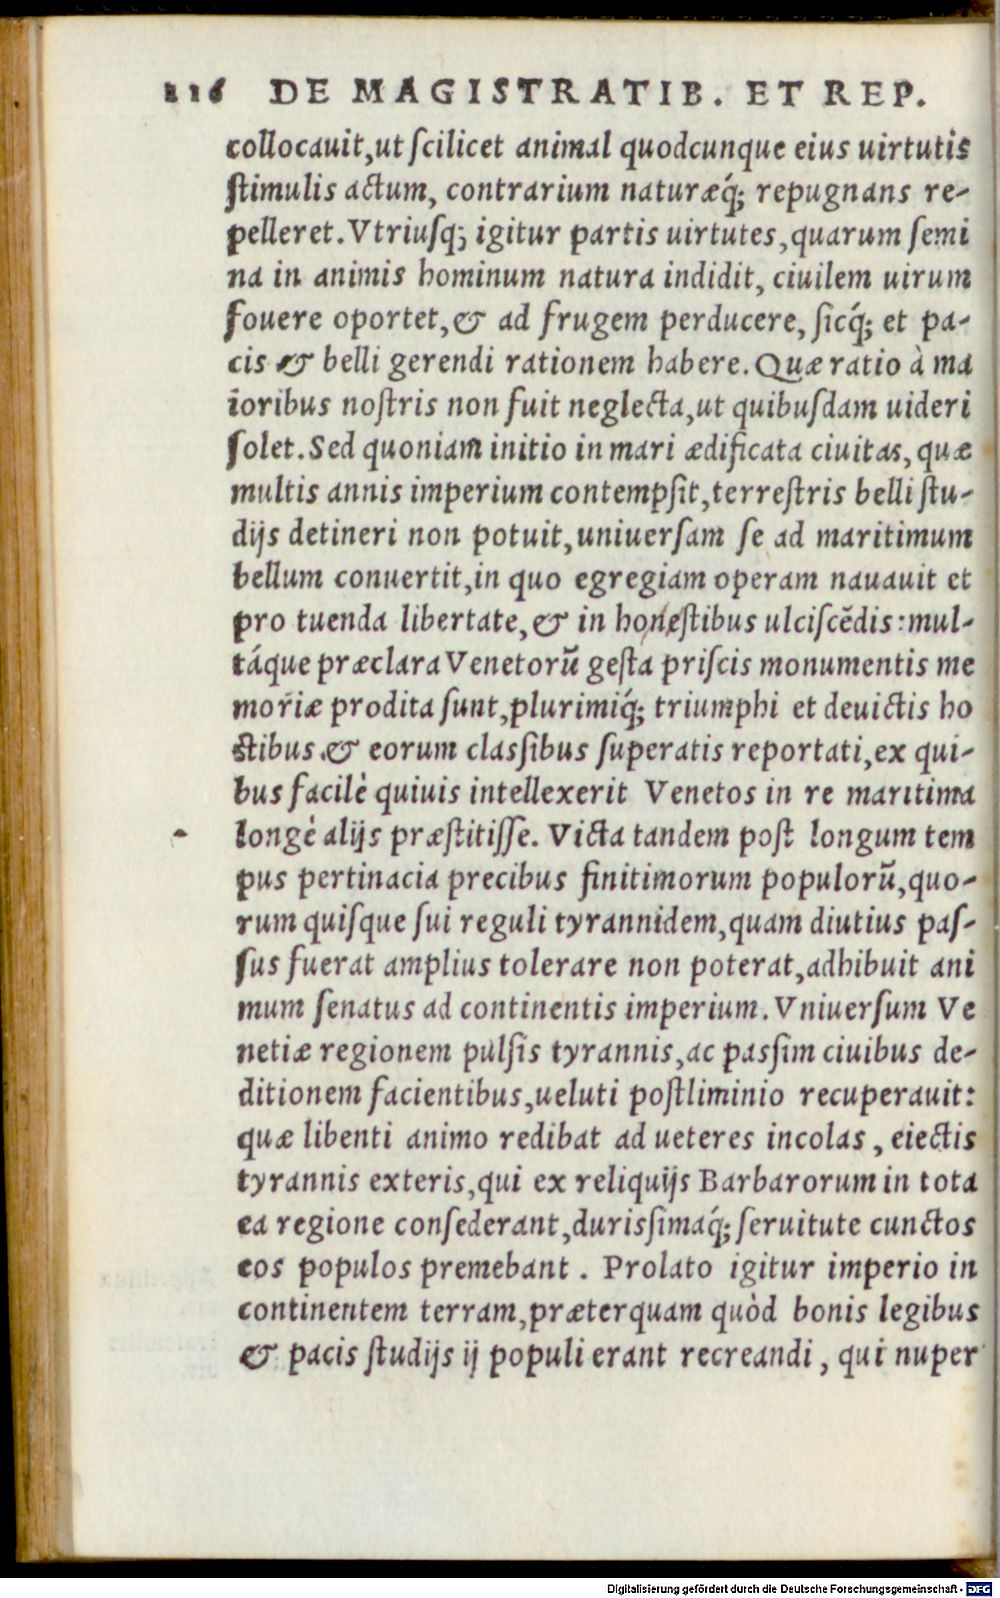 216 DE MAGISTRATIB. ET REP.
collocauit,ut ſcilicet animal quodcunque eius uirtutis
ſtimulis actum, contrarium naturæq́; repugnans re-
pelleret. Vtriuſq; igitur partis uirtutes,quarum ſemi
na in animis hominum natura indidit, ciuilem uirum
fouere oportet,& ad frugem perducere, ſicq́; et pa-
cis & belli gerendi rationem habere. Quæ ratio à ma
ioribus noſtris non fuit neglecta,ut quibuſdam uideri
ſolet. Sed quoniam initio in mari ædificata ciuitas, quæ
multis annis imperium contempſit,terreſtris belli ſtu-
dijs detineri non potuit,uniuerſam ſe ad maritimum
bellum conuertit,in quo egregiam operam nauauit et
pro tuenda libertate,& in honeſtibus ulciſcēdis:mul-
táque præclara Venetorū geſta priſcis monumentis me
moriæ prodita ſunt,plurimiq́; triumphi et deuictis ho
ſtibus & eorum claſſibus ſuperatis reportati,ex qui-
bus facilè quiuis intellexerit Venetos in re maritima
longè alijs præſtitiſſe. Victa tandem poſt longum tem
pus pertinacia precibus finitimorum populorū,quo-
rum quiſque ſui reguli tyrannidem,quam diutius paſ-
ſus fuerat amplius tolerare non poterat,adhibuit ani
mum ſenatus ad continentis imperium. Vniuerſum Ve
netiæ regionem pulſis tyrannis,ac paſſim ciuibus de-
ditionem facientibus,ueluti poſtliminio recuperauit:
quæ libenti animo redibat ad ueteres incolas, eiectis
tyrannis exteris,qui ex reliquijs Barbarorum in tota
ea regione conſederant,duriſſimaq́; ſeruitute cunctos
eos populos premebant. Prolato igitur imperio in
continentem terram,præterquam quòd bonis legibus
& pacis ſtudijs ij populi erant recreandi, qui nuper
Digitalisierung gefördert durch die Deutsche Forschungsgemeinschaft - DFG